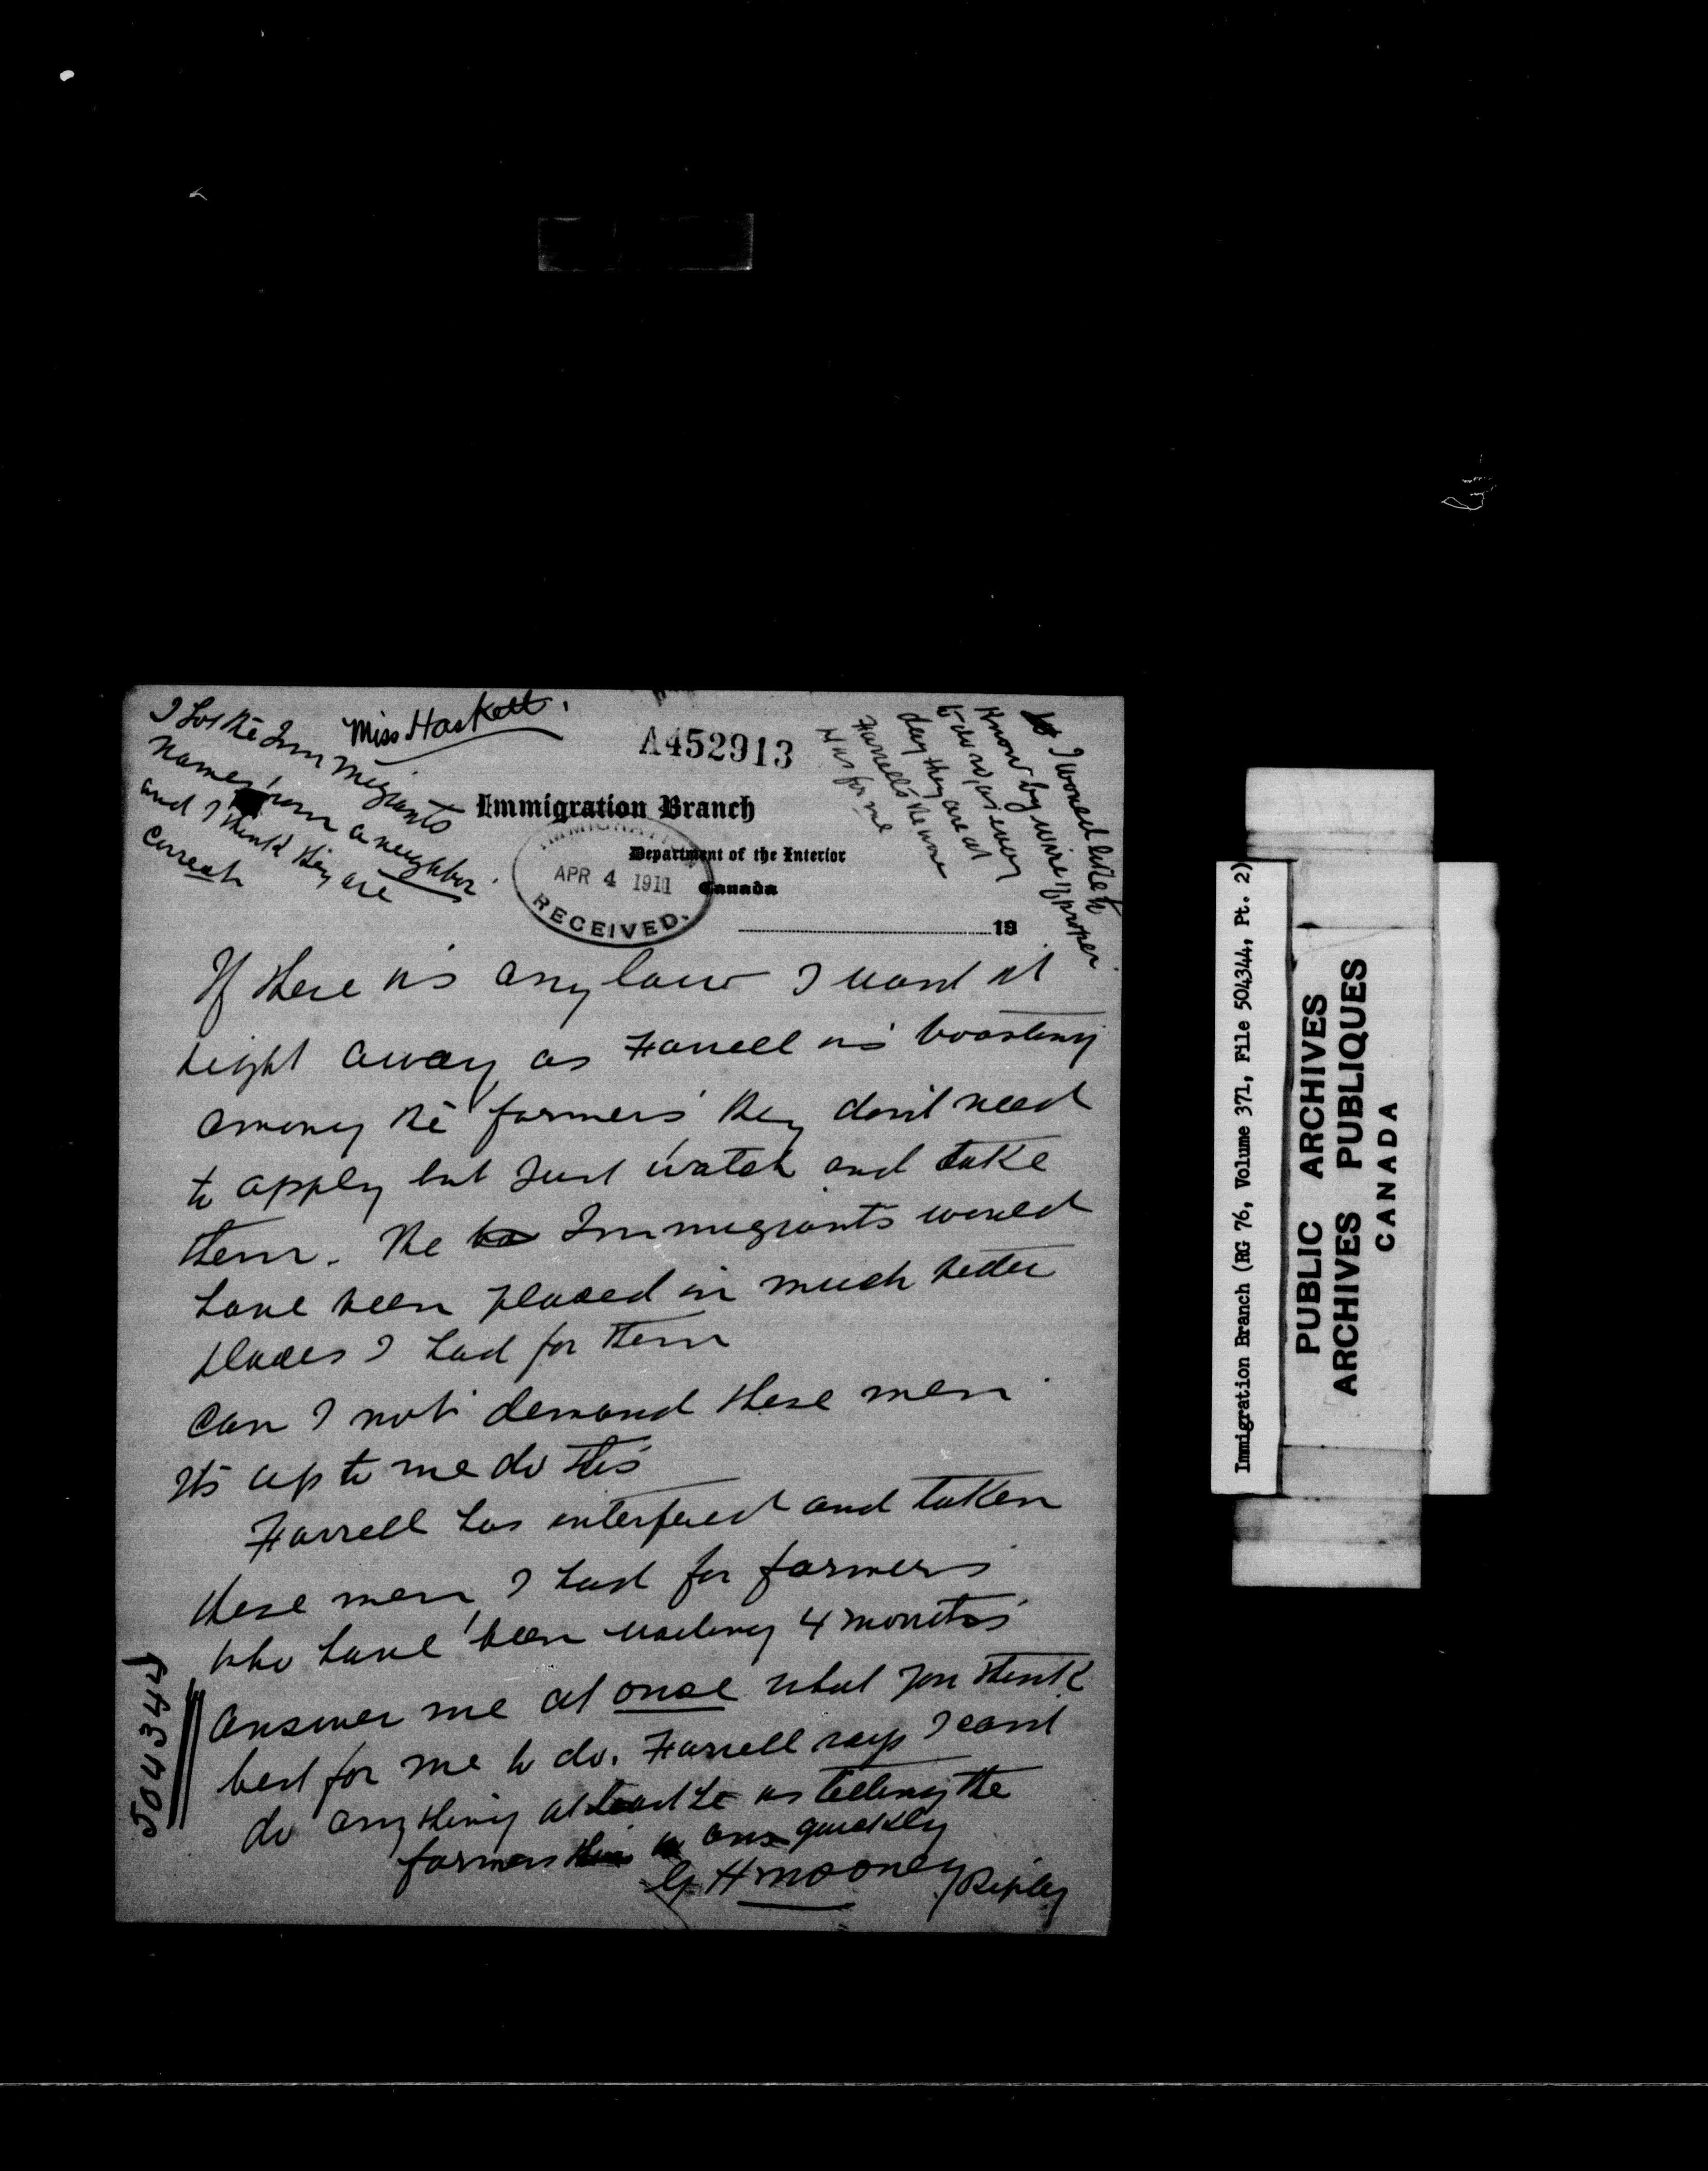 Miss Haskett.
A452913
I got the Immigrants
names from a neighbor
and I think they are
correct
I would like to
know by wire if proper
to do so, as every
day they are at
Farrell's the worse
it is for me
Immigration Branch
Department of the Interior
Canada
IMMIGRATION
APR 4 1911
RECEIVED.
19
If there is any law I want it
right away as Farrell is boasting
among the farmers they don't need
to apply but just watch and take
them. The Immigrants would
have been placed in much better
places I had for them
Can I not demand these men
Its up to me do this
Farrell has interfered and taken
these men I had for farmers
who have been waiting 4 months
Answer me at once what you think
best for me to do. Farrell says I cant
do anything at he is telling the
farmers ans quickly
G H Mooney Ripley
504344
Immigration Branch (RG 76, Volume 371, File 504344, Pt. 2)
PUBLIC ARCHIVES
ARCHIVES PUBLIQUES
CANADA